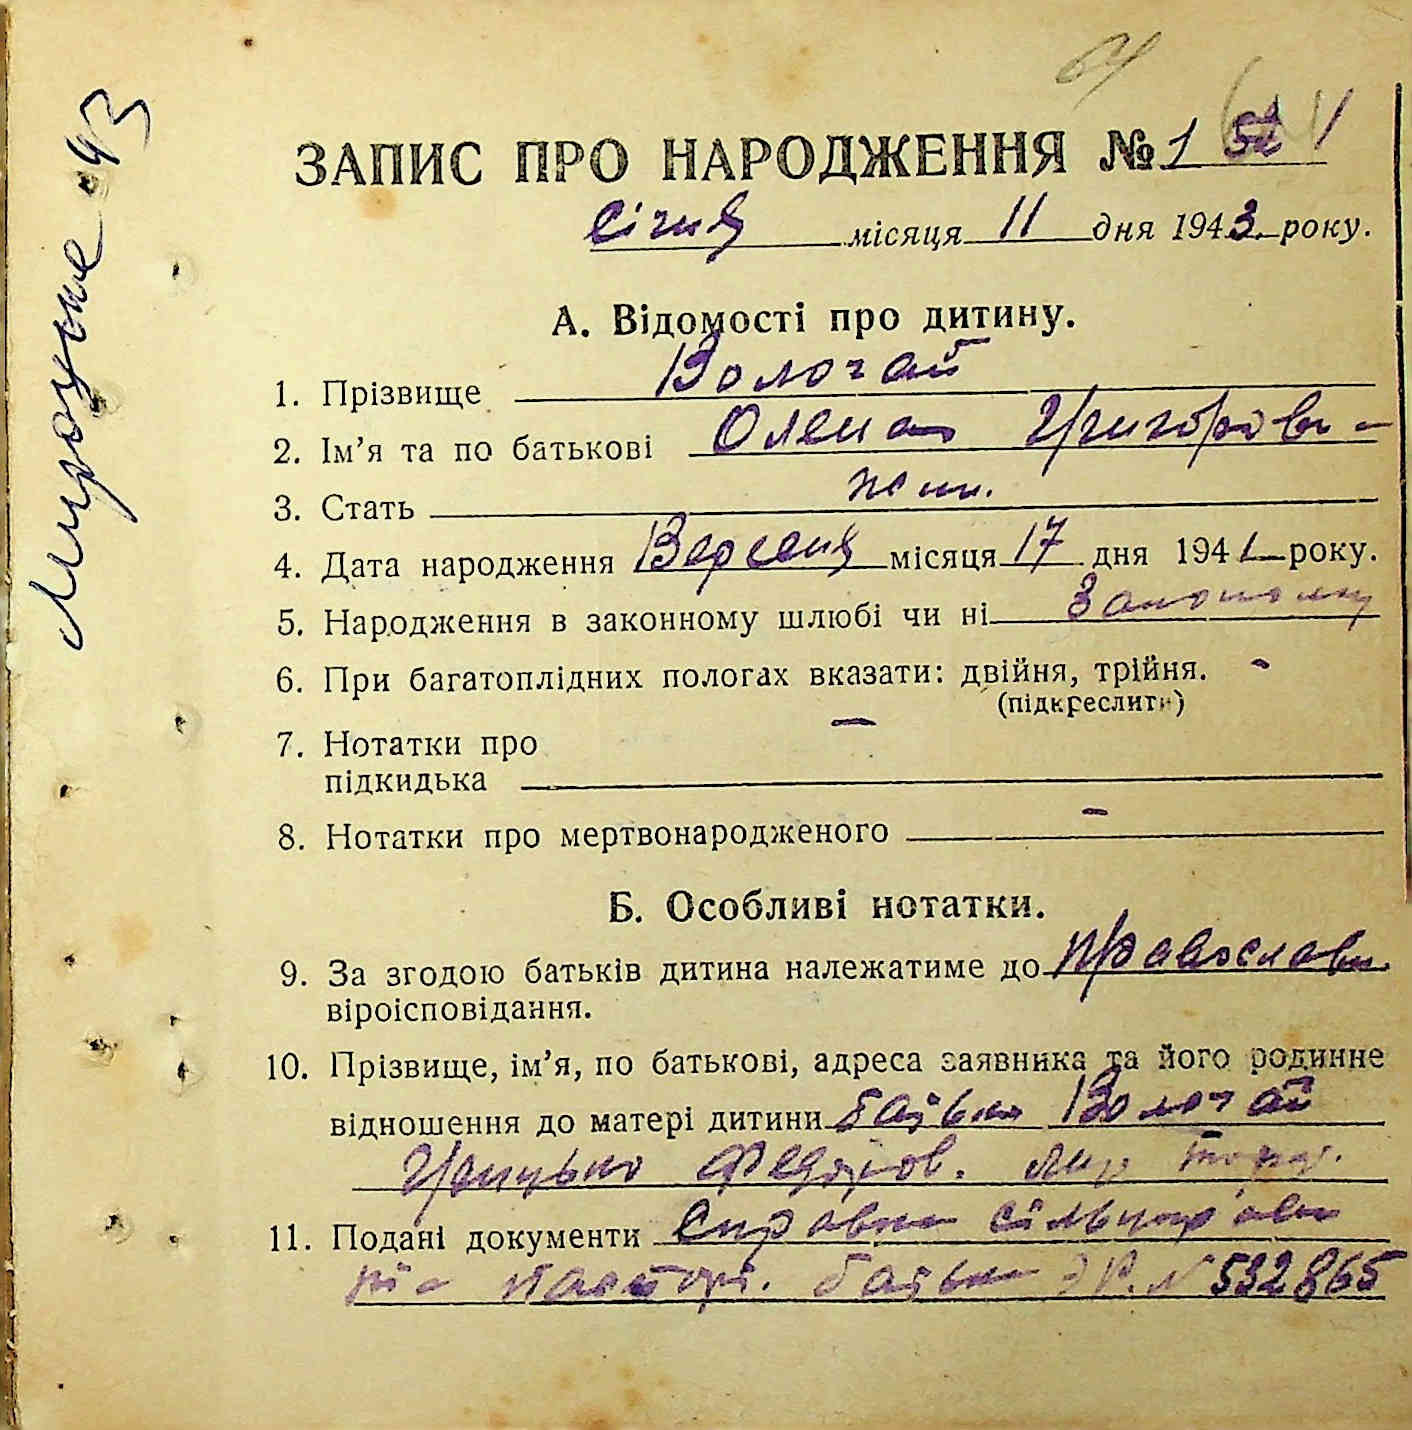 Мироцьке 43
64
ЗАПИС ПРО НАРОДЖЕННЯ № 1
січня місяця 11 дня 1943. року.
А. Відомості про дитину.
1. Прізвище Вологай
2. Ім’я та по батькові Олена Григорові-
3. Стать жін.
4. Дата народження Вересня місяця 17 дня 1941 року.
5. Народження в законному шлюбі чи ні Законному
6. При багатоплідних пологах вказати: двійня, трійня. -
(підкреслити)
7. Нотатки про —
підкидька
8. Нотатки про мертвонародженого -
Б. Особливі нотатки.
9. За згодою батьків дитина належатиме до православн.
віроісповідання.
10. Прізвище, ім’я, по батькові, адреса заявника та його родинне
відношення до матері дитини батько Вологай
Грицько Федоров.
11. Подані документи Справка сільуправи
та паспорт. батька № 532865